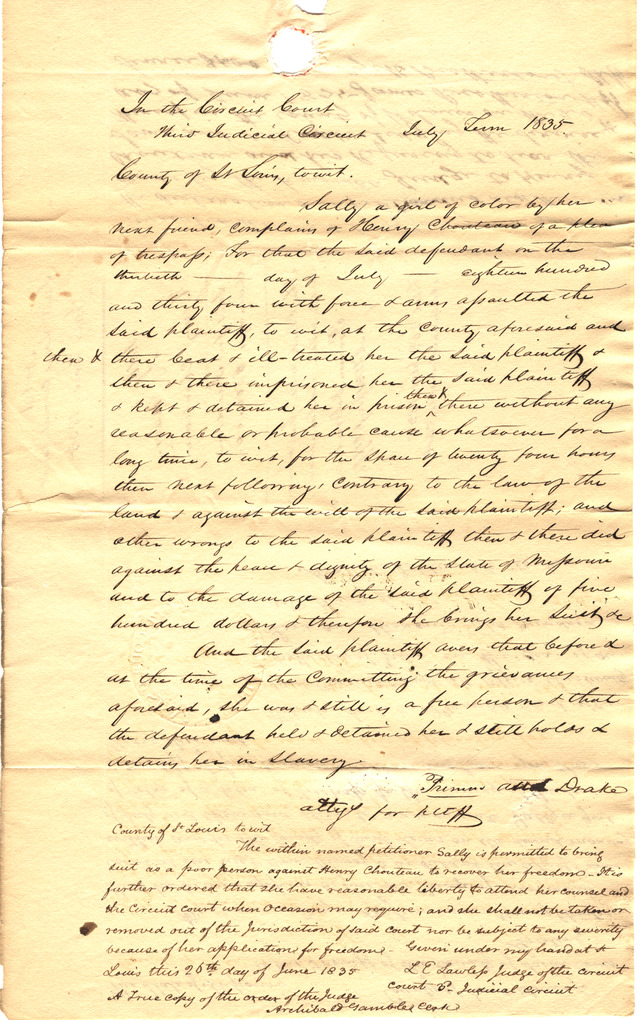 In the Circuit Court
Third Judicial Circuit July Term 1835.
County of St Louis, to wit.
Sally a girl of color by her
next friend, complains of Henry Chouteau of a plea
of trespass; For that the said defendant on the
thirtieth — day of July — eighteen hundred
and thirty four with force & arms assaulted the
said plaintiff, to wit, at the county aforesaid and
then & there beat & ill-treated her the said plaintiff &
then & there imprisoned her the said plaintiff
& kept & detained her in prison then & there without any
reasonable or probable cause whatsoever for a
long time, to wit, for the space of twenty four hours
then next following, contrary to the law of the
land & against the will of the said plaintiff; and
other wrongs to the said plaintiff then & there did
against the peace & dignity of the State of Missouri
and to the damage of the said plaintiff of five
hundred dollars & therefore she brings her suit &c
And the said plaintiff avers that before &
at the time of the committing the grievances
aforesaid, she was & still is a free person & that
the defendant held & detained her & still holds &
detains her in slavery.
Primus and Drake
attys for pltff
County of St Louis to wit
The within named petitioner Sally is permitted to bring
suit as a poor person against Henry Chouteau to recover her freedom - It is
further ordered that she have reasonable liberty to attend her counsel and
the Circuit court when occasion may require; and she shall not be taken or
removed out of the Jurisdiction of said court nor be subject to any severity
because of her application for freedom - Given under my hand at St
Louis this 26th day of June 1835 L E Lawless Judge of the circuit
court 3d Judicial Circuit
A True copy of the order of the Judge
Archibald Gamble Clerk